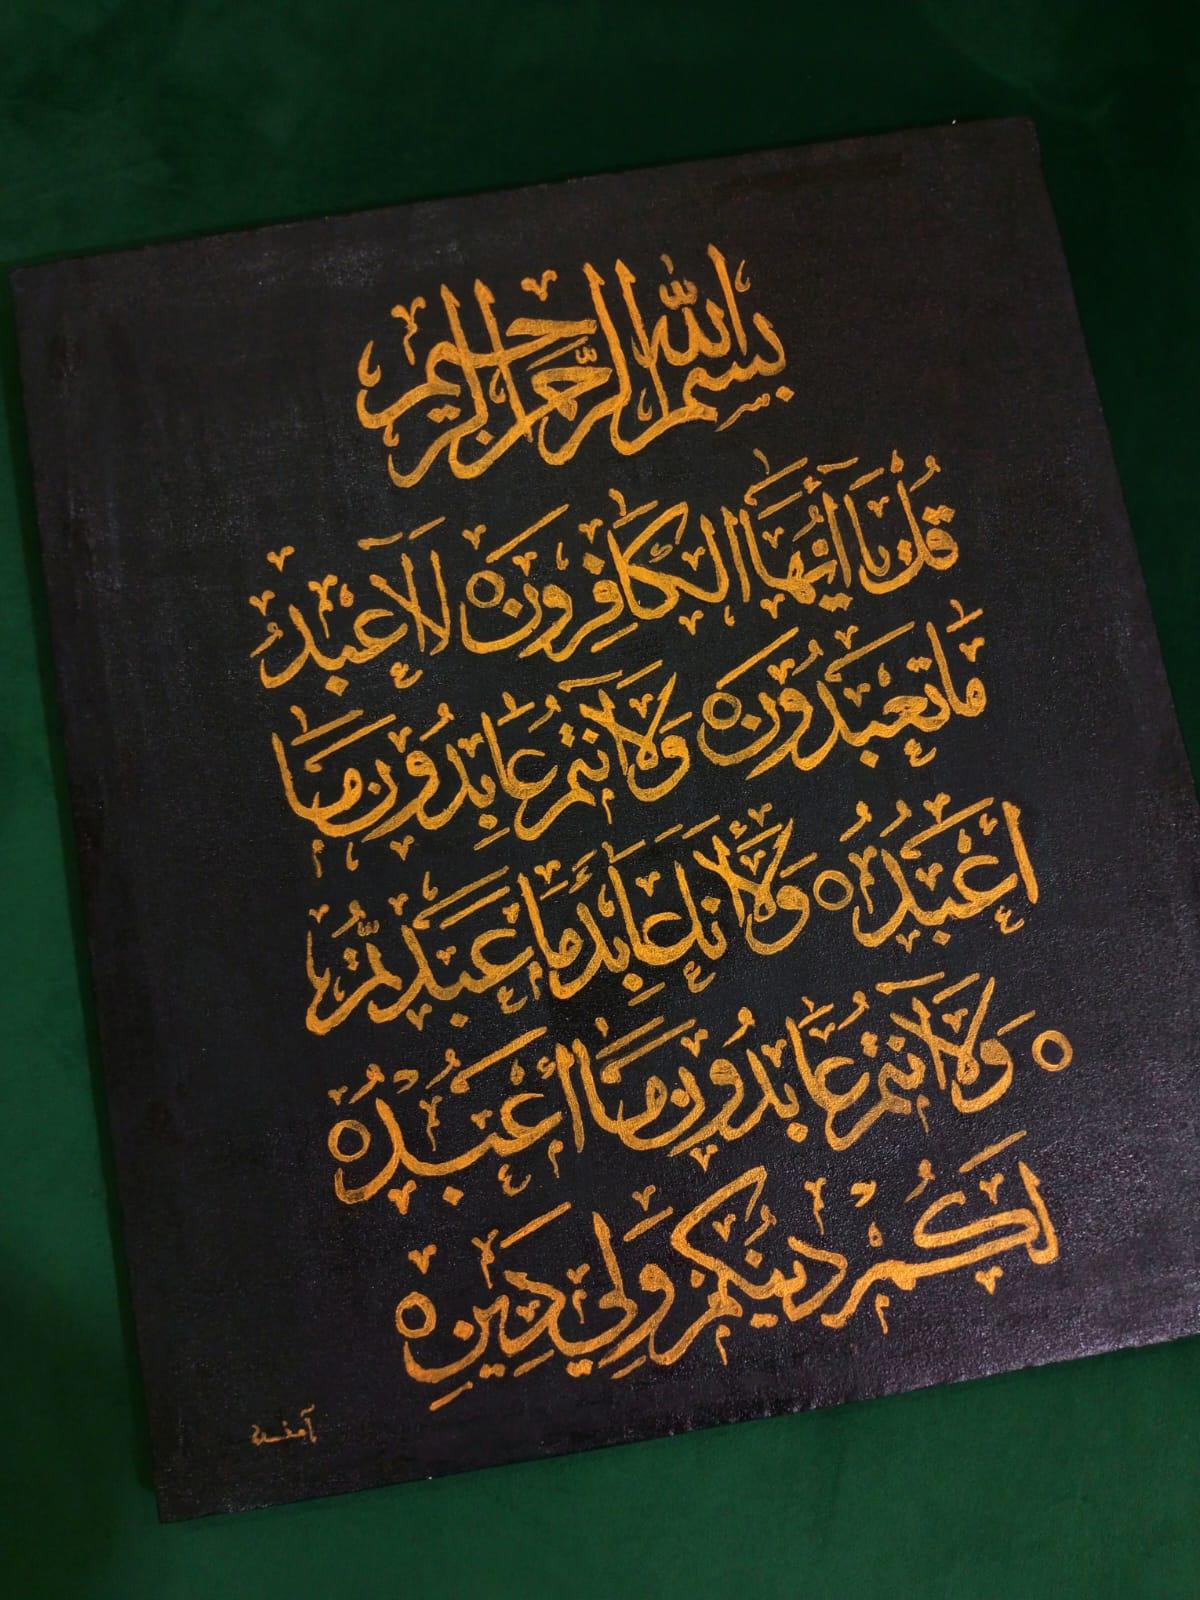 بسم الله الرحمن الرحيم
قُل يَا أَيُّهَا الكَافِرُونَ ه لَا أَعبُدُ
مَا تَعبُدُونَ ه وَلَا أَنتُم عَابِدُونَ مَا
أَعبُدُ ه وَلَا أَنَا عَابِدٌ مَا عَبَدتُّم
ه وَلَا أَنتُم عَابِدُونَ مَا أَعبُدُ ه
لَكُم دِينُكُم وَلِيَ دِينِ ه
آمنة